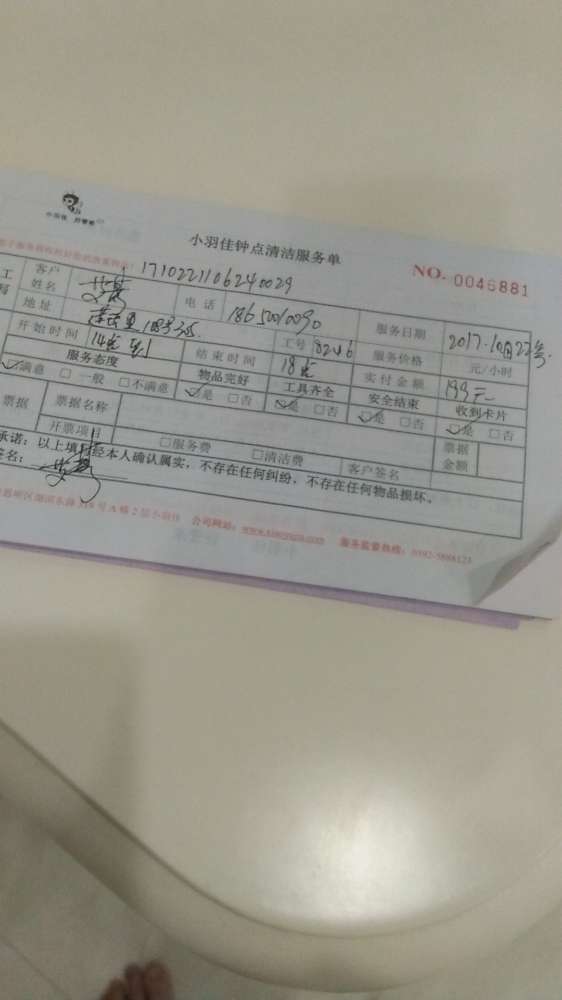 小羽佳 好管家
小羽佳钟点清洁服务单
NO. 0046881
1710221106240029
客户姓名 电话 18650010090 服务日期 2017.10月22号
地址 工号 8246 服务价格 元/小时
开始时间 14点 结束时间 18点 实付金额 199元
服务态度 物品完好 工具齐全 安全结束 收到卡片
☑满意 □一般 □不满意 ☑是 □否 ☑是 □否 ☑是 □否 ☑是 □否
票据 票据名称 票据金额
开票项目 □服务费 □清洁费 客户签名
承诺:以上填写经本人确认属实,不存在任何纠纷,不存在任何物品损坏。
签名:
公司网站: 服务监督热线:0592-5888123